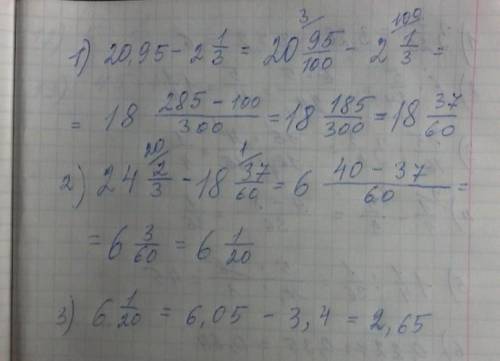 1) 20,95 - 2 1/3 = 20 95/100 ³/ - 2 1/3 ¹⁰⁰/ =
= 18 (285 - 100)/300 = 18 185/300 = 18 37/60
2) 24 2/3 ²⁰/ - 18 37/60 ¹/ = 6 (40 - 37)/60 =
= 6 3/60 = 6 1/20
3) 6 1/20 = 6,05 - 3,4 = 2,65